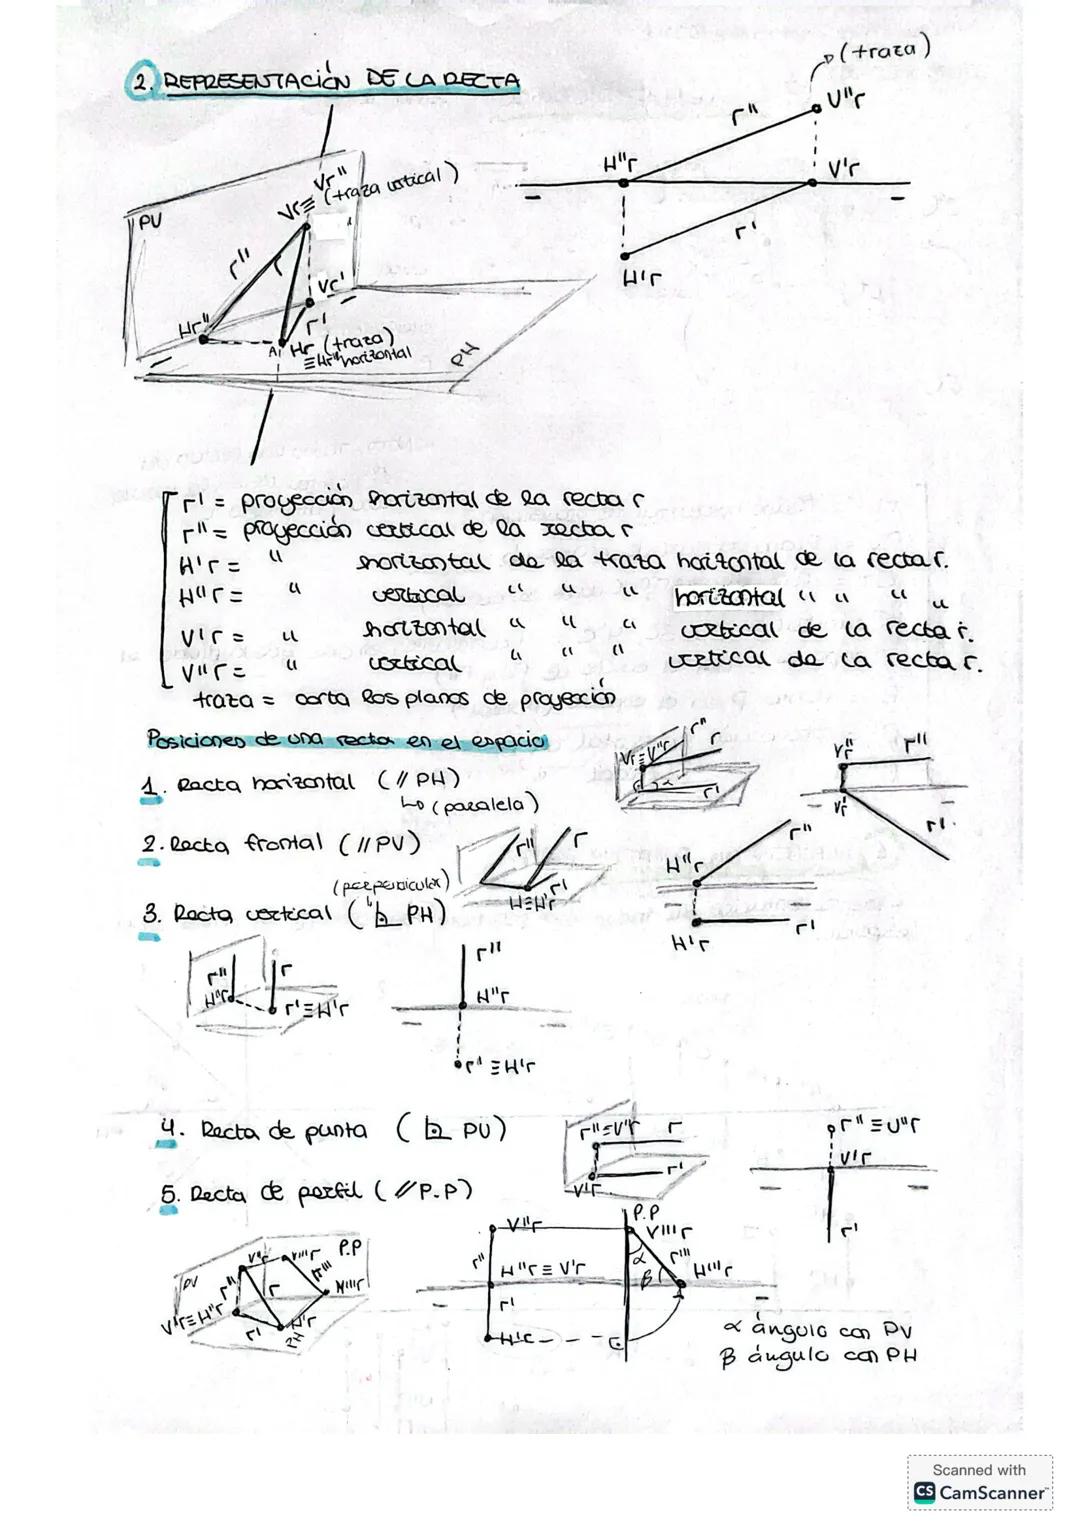 2. REPRESENTACIÓN DE LA RECTA
(traza)
r"
V"r
H"r
V'r
r'
H'r
PV
Vr"
Vr≡ (traza vertical)
r"
r
Vr'
Hr"
r'
A
Hr (traza)
≡Hr" horizontal
PH
r' = proyección horizontal de la recta r
r" = proyección vertical de la recta r
H'r = " horizontal de la traza horizontal de la recta r.
H"r = " vertical " " " horizontal " " " "
V'r = " horizontal " " " vertical de la recta r.
V"r = " vertical " " " vertical de la recta r.
traza = corta los planos de proyección
Posiciones de una recta en el espacio
1. Recta horizontal (// PH)
↳ (paralela)
Vr≡V"r
r"
r
r'
Vr"
r"
Vr'
r'
2. Recta frontal (// PV)
r"
r
H≡H'r
r'
H"r
r"
H'r
r'
(perpendicular)
3. Recta vertical ( PH)
r"
H"r
r
r'≡H'r
r"
H"r
r'≡H'r
4. Recta de punta ( PV)
r"≡V'r
r
r'
V'r
r"≡V"r
V'r
r'
5. Recta de perfil (// P.P)
PV
V"r
V'''r
P.P
r"
r
r'''
H'''r
V'r≡H"r
r'
H'r
PH
V"r
P.P
V'''r
r"
H"r≡V'r
α
r'''
β
H'''r
r'
H'r
α ángulo con PV
β ángulo con PH
Scanned with
CS CamScanner